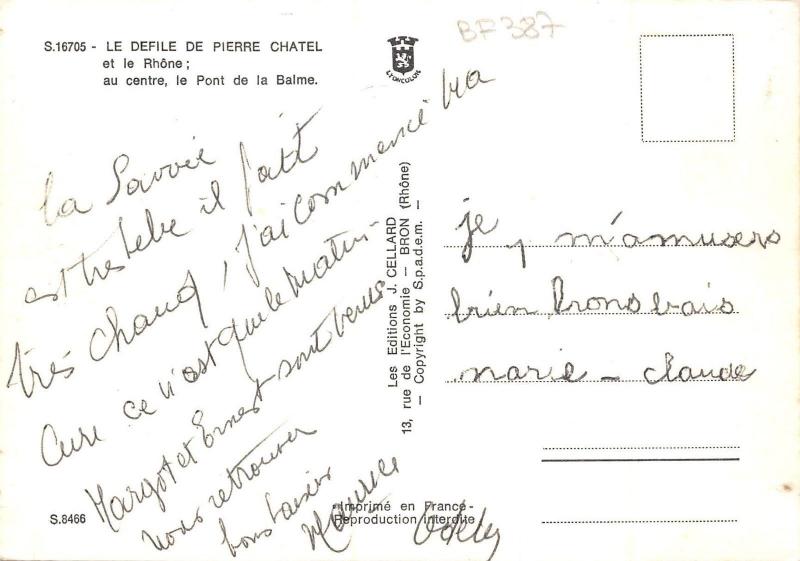 S.16705 - LE DEFILE DE PIERRE CHATEL
et le Rhône ;
au centre, le Pont de la Balme.
LYONCOLOR
BF387
La Savoie
est tres belle il fait
très chaud, j'ai commencé ma
Cure ce n'est que le matin
Margot et Ernest sont venus
nous retrouver
bons baisers
Maurice
Odette
Les Editions J. CELLARD
13, rue de l'Economie - BRON (Rhône)
— Copyright by S.p.a.d.e.m. —
je y m'amusers
bien Brons bais
marie - claude
S.8466
-Imprimé en France-
Reproduction interdite